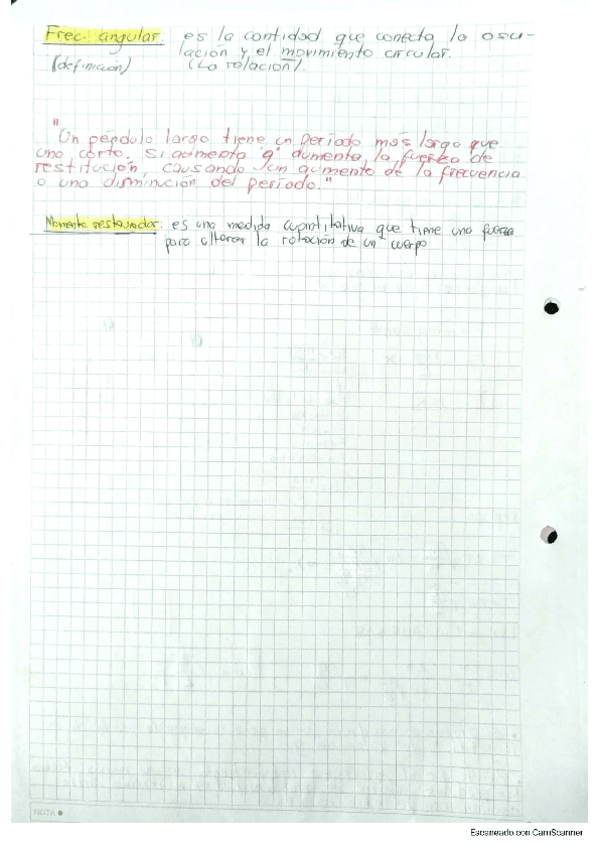 Frec. angular: es la cantidad que conecta la osci-
(definición) lación y el movimiento circular.
(La relación).
"
Un péndulo largo tiene un periodo más largo que
uno corto. Si aumenta "g" aumenta, la fuerza de
restitución, causando un aumento de la frecuencia
o una disminución del periodo."
Momento restaurador: es una medida cuantitativa que tiene una fuerza
para alterar la rotación de un cuerpo
NOTA
Escaneado con CamScanner